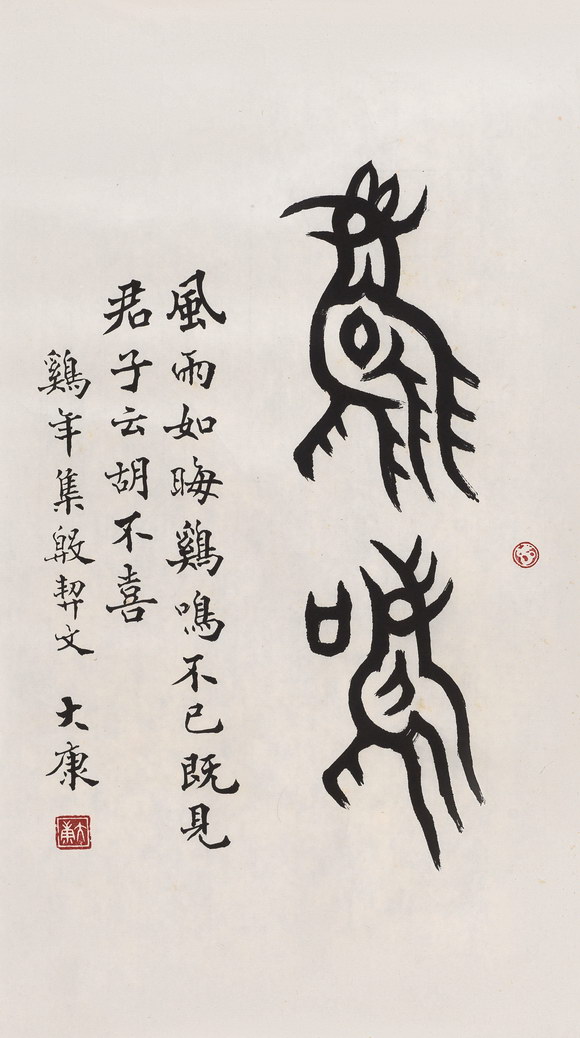 雞鳴
風雨如晦鷄鳴不已既見
君子云胡不喜
鷄年集殷契文 大康
大康